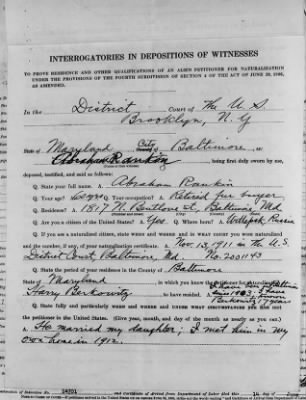 INTERROGATORIES IN DEPOSITIONS OF WITNESSES
TO PROVE RESIDENCE AND OTHER QUALIFICATIONS OF AN ALIEN PETITIONER FOR NATURALIZATION
UNDER THE PROVISIONS OF THE FOURTH SUBDIVISION OF SECTION 4 OF THE ACT OF JUNE 29, 1906,
AS AMENDED.
In the District Court of The U S
Brooklyn, N. Y
State of Maryland City of Baltimore, ss:
Abraham Rankin, being first duly sworn by me,
deposed, testified, and said as follows:
Q. State your full name. A. Abraham Rankin
Q. Your age? Q. Your occupation? A. Retired fur buyer
Q. Residence? A. 1817 N. Bentlone St, Baltimore, Md.
Q. Are you a citizen of the United States? A. Yes. Q. Where born? A. Russia
Q. If you are a naturalized citizen, state when and where and in what court you were naturalized
and the number, if any, of your naturalization certificate. A. Nov. 13, 1911 in the U.S.
District Court, Baltimore, Md. No. 2001143
Q. State the period of your residence in the County of Baltimore
State of Maryland, in which you know the petitioner for naturalization
Harry Berkowitz to have resided. A.
Q. State fully and particularly when and where and under what circumstances you first met
the petitioner in the United States. (Give year and month, and day of the month as nearly as you can.)
A. He married my daughter; I met him in my
own home in 1912.